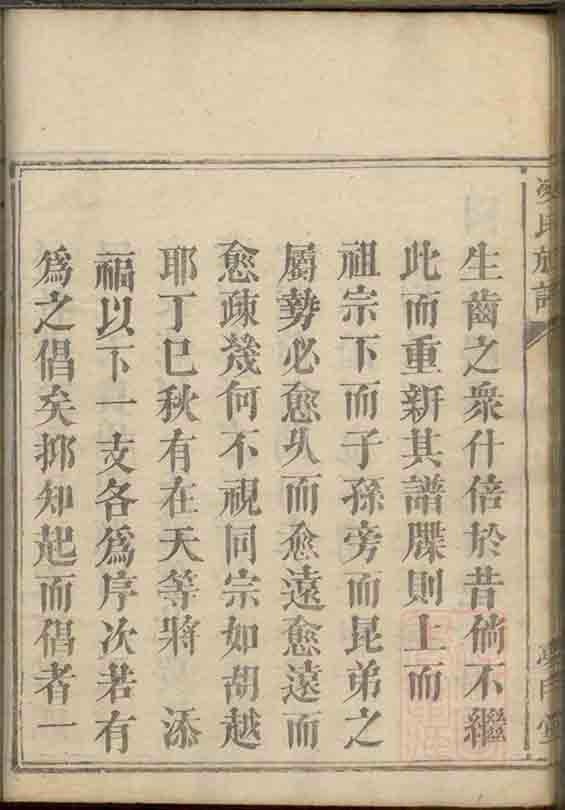 氏族譜
生齒之衆什倍於昔倘不繼
此而重新其譜牒則上而
祖宗下而子孫旁而昆弟之
屬勢必愈乆而愈遠愈遠而
愈疎幾何不視同宗如胡越
耶丁巳秋有在天等將添
福以下一支各爲序次若有
爲之倡矣抑知起而倡者一